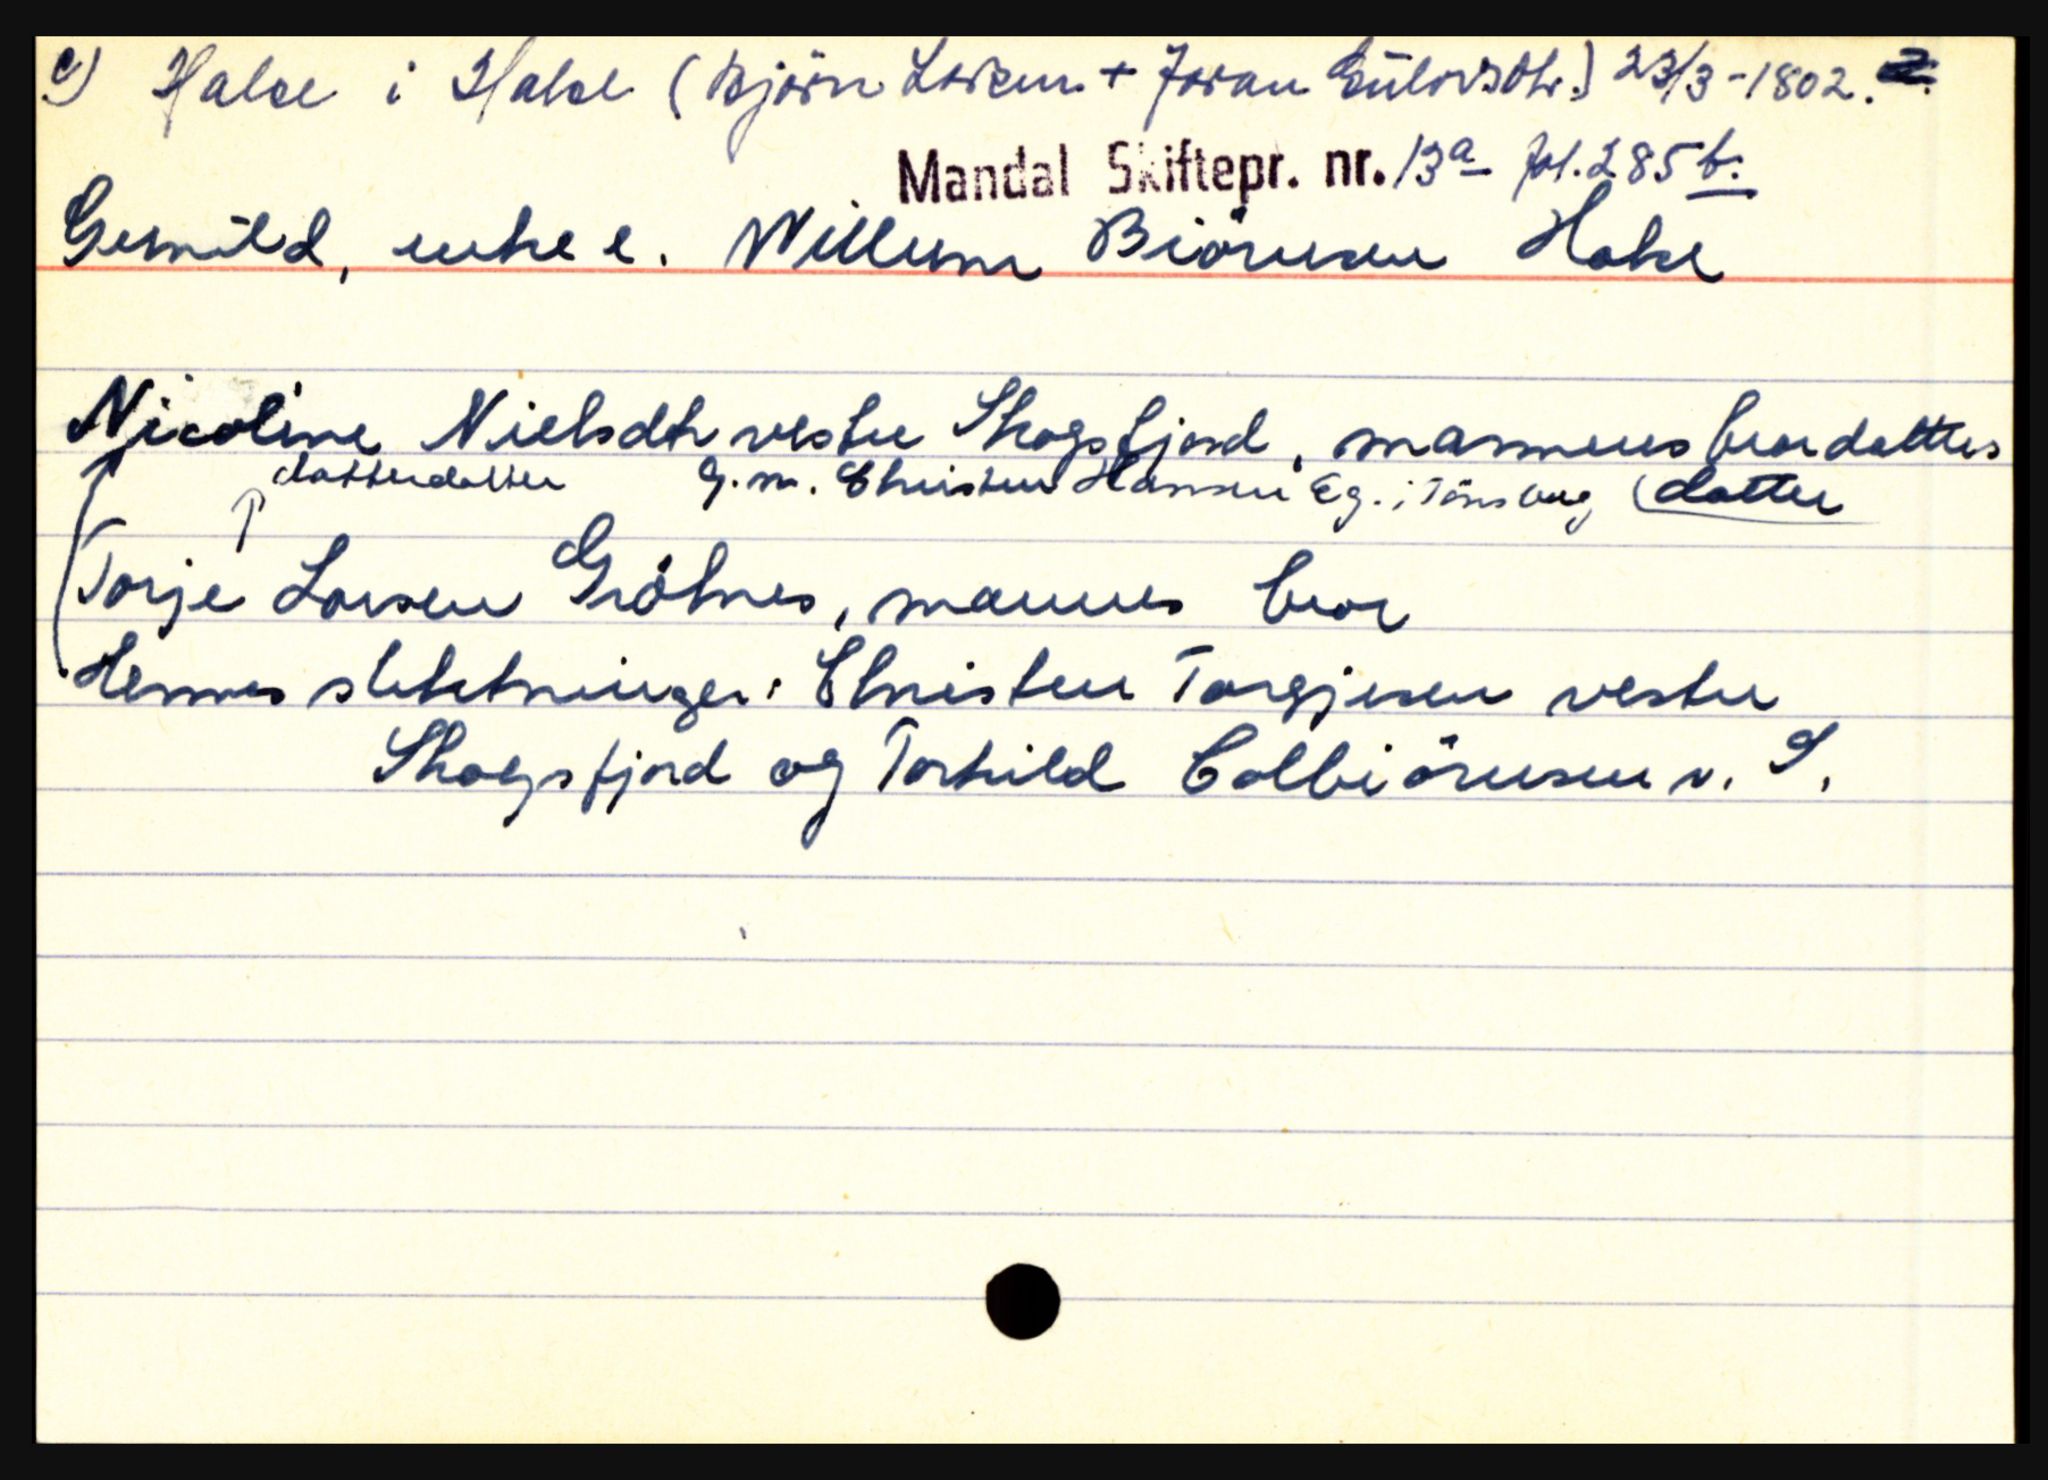 e) Halse i Halse (Bjørn Larsen + Joran Eülovsdtr.) 23/3-1802.
Mandal Skiftepr. nr. 13a fol. 285 b.
Gunnild, enke e. Willum Biørnsen Halse
Nicoline Nielsdtr vestre Skogsfjord, mannens brordatters
datterdatter g.m. Christen Hansen Eg. i Tønsberg datter
Torje Larsen Grølnes, mannens bror
Hennes slektninger: Christen Torgjersen vestre
Skogsfjord og Torkild Colbiørnsen v. S.